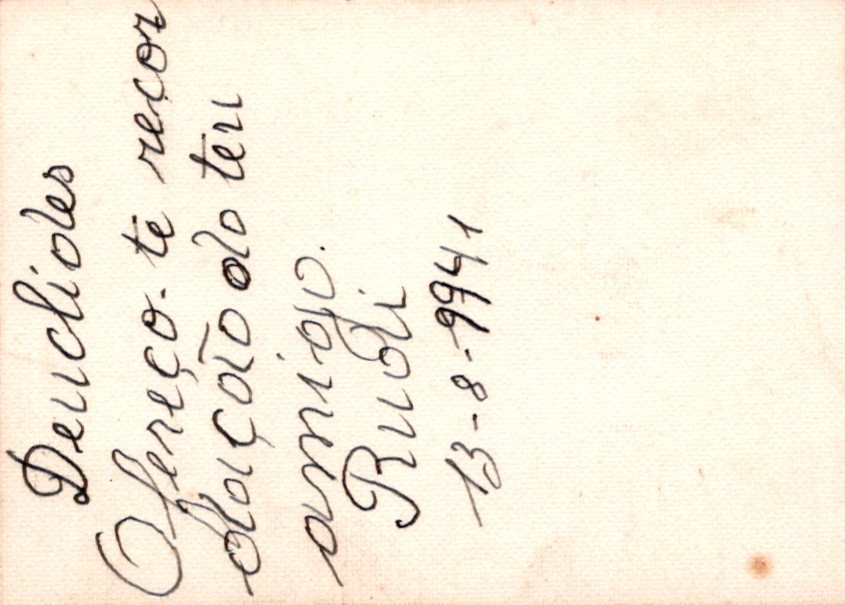 Deuclides
Ofereço-te recor
dação do teu
amigo.
Rudi
13-8-9941